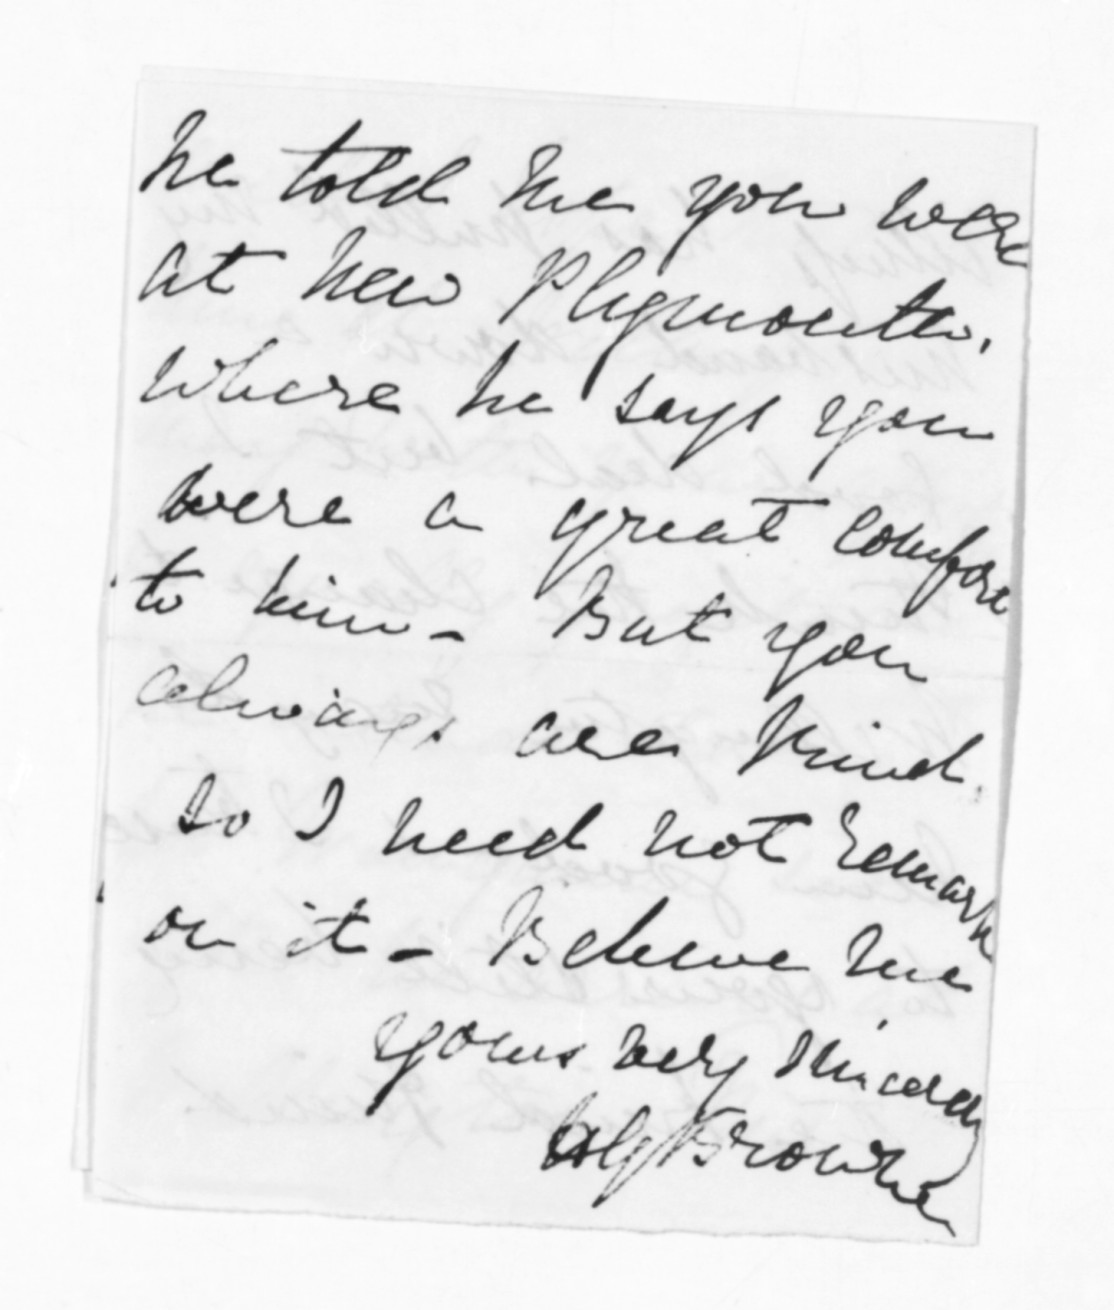 he told me you were
at New Plymouth,
where he says you
were a great comfort
to him - But you
always are kind.
so I need not remark
on it - Believe me
yours very sincerely
Browne